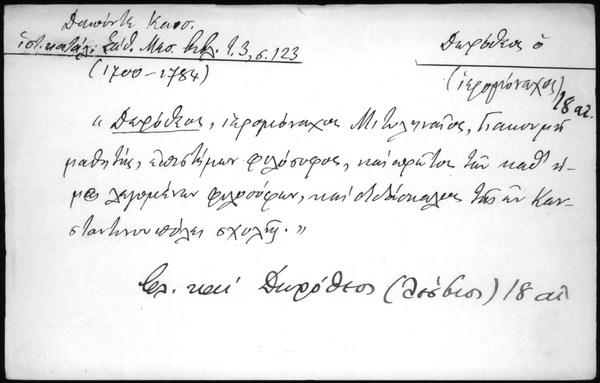 Δαπόντε Κωνσ.
ἱστ. κατάλ. Σάθ. Μεσ. Βιβλ. τ. 3, σ. 123
(1700-1784)
Δωρόθεος ὁ
(ἱερομόναχος)
18 αἰ.
« Δωρόθεος, ἱερομόναχος Μιτυληναῖος, Διακουμῆ
μαθητής, ἐπιστήμων φιλόσοφος, καὶ πρῶτος τῶν καθ' ἡ-
μᾶς λεγομένων φιλοσόφων, καὶ διδάσκαλος τῆς ἐν Κων-
σταντινουπόλει σχολῆς. »
Βλ. καὶ Δωρόθεος (Λέσβιος) 18 αἰ.